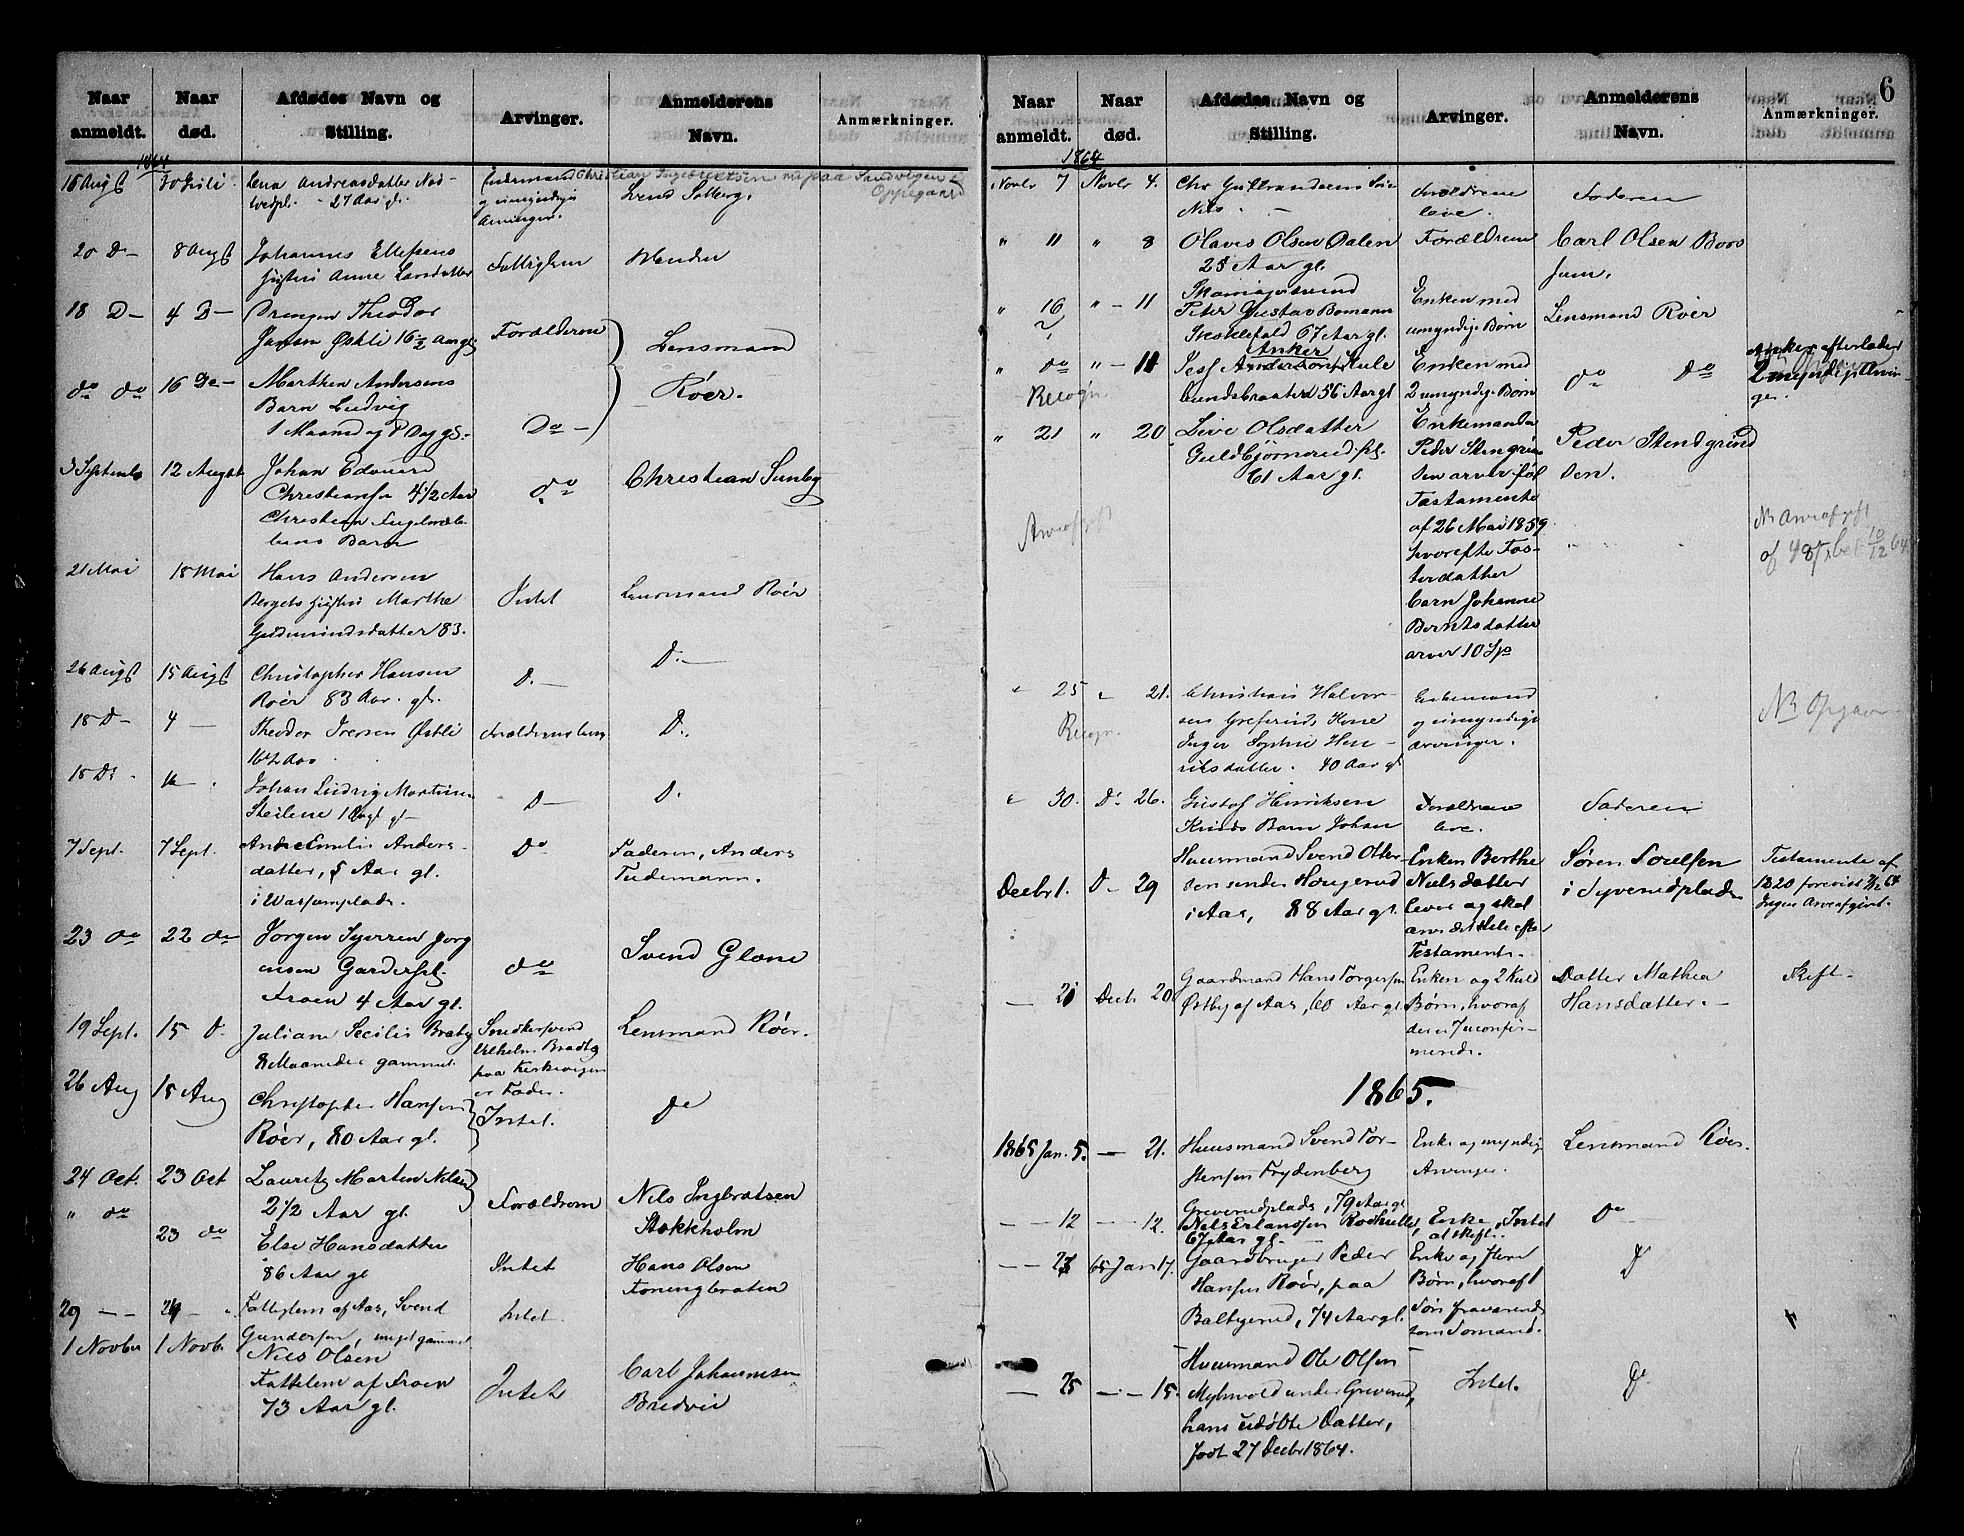 Naar anmeldt.
Naar død.
Afdødes Navn og Stilling.
Arvinger.
Anmelderens Navn.
Anmærkninger.
1864
16 Augst
30 Juli
Lena Andreasdatter
27 Aar gl.
Enkemand Christian Ingebretsen nu paa Sandvigen i
Oppegaard
og umyndige
Arvinger.
Svend Solberg.
20 D—
8 Augst
Johannes Ellefsens
Hustru Anne Larsdatter
Fattiglem
18 D—
4 D—
Drengen Theodor
Jansen Østli 16½ Aar gl.
Forældrene
Lensmand
Røer.
do do
16 De—
Marthen Andersens
Barn Ludvig
1 Maaned og 8 Dag gl.
Do —
3 September
12 August
Johan Edvard
Christiansen 4½ Aar
Christian
Barn
do
Christian Sunby
21 Mai
18 Mai
Hans Andersen
Berget Hustru Marthe
Gudmundsdatter 83.
Intet
Lensmand Røer
26 Augst
15 Augst
Christopher Hansen
Røer 83 Aar gl.
D. —
D. —
18 D—
4 —
Theodor Iversen Østli
16½ Aar
Forældrene
D.
18 D. -
Johan Ludvig Martinsen
Steilene
D—
D.
7 Sept.
7 Sept.
Andrea Emilie Anders-
datter, 5 Aar gl.
i Wasjumplads.
Do
Faderen, Anders
Tudemann.
23 do
22 do
Jørgen Syveren Jørg
ensen Garderpl.
Froen 4 Aar gl.
do
Svend Glene
19 Sept.
15 D.
Juliane Secilie Bratby
8 Maaneder gammel.
Snedkersvend
Vilhelm Bradtby
paa Kirkevigen
er Fader.
Lensmand Røer.
26 Aug
15 Aug
Christopher Hansen
Røer, 80 Aar gl.
Intet.
Do
24 Oct.
23 Oct
Lauritz Marten Nilsen
2½ Aar gl.
Forældrene
Nils Ingbretsen
Stokkholm
" do
23 do
Else Hansdatter
86 Aar gl
Intet
Hans Olsen
Foningbraten
29 — —
24 — .
Fattiglem af Aas, Svend
Gundersen, meget gammel
Intet
1 Novbr
1 Novb.
Nils Olsen
Fattelem af Froen
73 Aar gl.
Intet
Carl Johannesen
Bredvie
6
Naar anmeldt.
Naar død.
Afdødes Navn og Stilling.
Arvinger.
Anmelderens Navn.
Anmærkninger.
1864
Novbr 7
Novbr 4.
Chr Gulbrandsens Søn
Nils. —
Forældrene
leve.
Faderen
" 11
" 8
Olaves Olsen Dalen
25 Aar gl.
Forældrene
Carl Olsen Boos
jum.
" 16
" — 11
Skomagersvend
Peter Gustav Bomann
Skoklefald 67 Aar gl.
Enken med
umyndige Børn
Lensmand Røer
" do
Recogn.
" — 11
Anker
Anderson Hule
lundsbraaten 56 Aar gl
Enken med
2 umyndige Børn
do do
Anker efterlader
2 myndige Arvin-
ger.
" 21
" 20
Live Olsdatter
Guldbjørnrud pl.
61 Aar gl.
Enkemanden
Peder Stengrim
sen arver iføl
Testamente
af 26 Mai 1859,
hvorefter Fos-
terdatter
barn Johanne
Berntsdatter
arver 10 Sp
Peder Stendgrind
sen.
Arveafgift
NB Arveafgift
af 48 bet. 10/12 64
" 25
Recogn.
" 21.
Christian Halvor-
sen Greferud, Kone
Inger Sophie Hen-
riksdatter. 40 Aar gl
Enkemand
og umyndige
Arvinger.
NB Opgave
" 30.
D. 26.
Gustof Henriksen
Knids Barn Johan
Forældrene
leve.
Faderen
Decbr 1.
D— 29
Huusmand Svend Otter-
sen under Haugerud
i Aas, 88 Aar gl.
Enken Berthe
Nielsdatter
lever og skal
arve det Hele efter
Testament.
Søren Poulsen
i Syverudplads
Testamente af
1820 forevist 7/12 64
Ingen Arveafgivt.
— 21
Decb 20
Gaardmand Hans Torgersen
Østby af Aas, 60 Aar gl
Enken og 2 Kuld
Børn, hvoraf
der er 7 uconfir-
merede.
Datter Mathea
Hansdatter. —
Skift —
1865.
1865 Jan. 5.
— 21.
Huusmand Svend Tor-
stensen Frydenberg
Greverudplads, 79 Aar gl
Enke og myndige
Arvinger.
Lensmand Røer.
— — 12
— — 12.
Niels Erlandsen Rødhullet,
67 Aar gl. —
Enke, Intet
at skifte.
Do
— — 23
65 Jan 17.
Gaardbruger Peder
Hansen Røer, paa
Baltgerud, 74 Aar gl.
Enke og flere
Børn, hvoraf 1
Søn fraværende
som Sømand.
D
— 25
— — 15.
Huusmand Ole Olsen
Myhrvold under Greverud,
hans udøbte Datter,
født 27 Decbr 1864.
Intet.
D